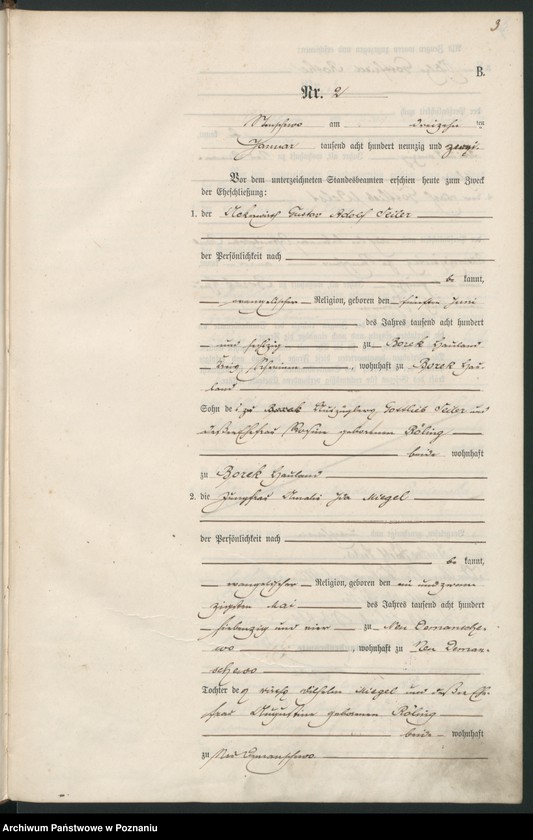 3
B.
Nr. 2
am dreizehn ten
Januar tausend acht hundert neunzig und zwei.
Vor dem unterzeichneten Standesbeamten erschien heute zum Zweck
der Eheschließung:
1. der Gustav Adolf Seiler
der Persönlichkeit nach
be kannt,
evangelischer Religion, geboren den fünften Juni
des Jahres tausend acht hundert
und sechzig zu Borek Hauland
Kreis Schrimm, wohnhaft zu Borek Hau-
land
Sohn de Gottlieb Seiler und
dessen Ehefrau Rosine geborenen Röling
beide wohnhaft
zu Borek Hauland
2. die Jungfrau Amalie Ida Miegel
der Persönlichkeit nach
be kannt,
evangelischer Religion, geboren den ein und zwan
zigsten Mai des Jahres tausend acht hundert
siebenzig und vier zu Neu
wo, wohnhaft zu Neu
Tochter de Wirths Wilhelm Miegel und dessen Ehe
frau Augustine geborenen Röling
beide wohnhaft
zu Neu
Archiwum Państwowe w Poznaniu